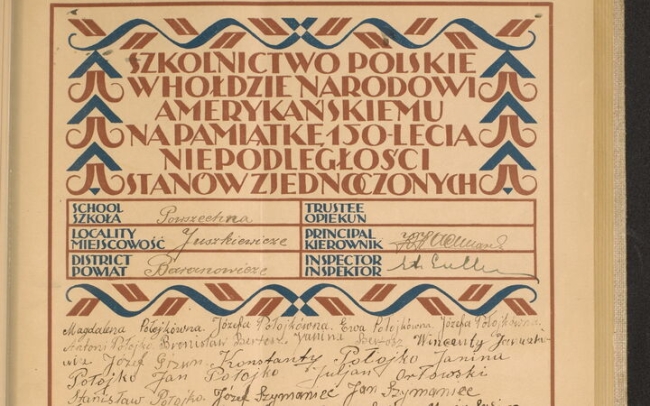 SZKOLNICTWO POLSKIE
W HOŁDZIE NARODOWI
AMERYKAŃSKIEMU
NA PAMIĄTKĘ 150-LECIA
NIEPODLEGŁOŚCI
STANÓW ZJEDNOCZONYCH
SCHOOL
SZKOŁA Powszechna
TRUSTEE
OPIEKUN
LOCALITY
MIEJSCOWOŚĆ Juszkiewicze
PRINCIPAL
KIEROWNIK
DISTRICT
POWIAT Baranowicze
INSPECTOR
INSPEKTOR
Magdalena Połojkówna. Józefa Połojkówna. Ewa Połojkówna. Józefa Połojkówna.
Antoni Połojko. Bronisław Janina Wincenty
Józef Konstanty Połojko Janina
Połojko Jan Połojko Juljan Orłowski
Stanisław Połojko. Józef Szymaniec Jan Szymaniec